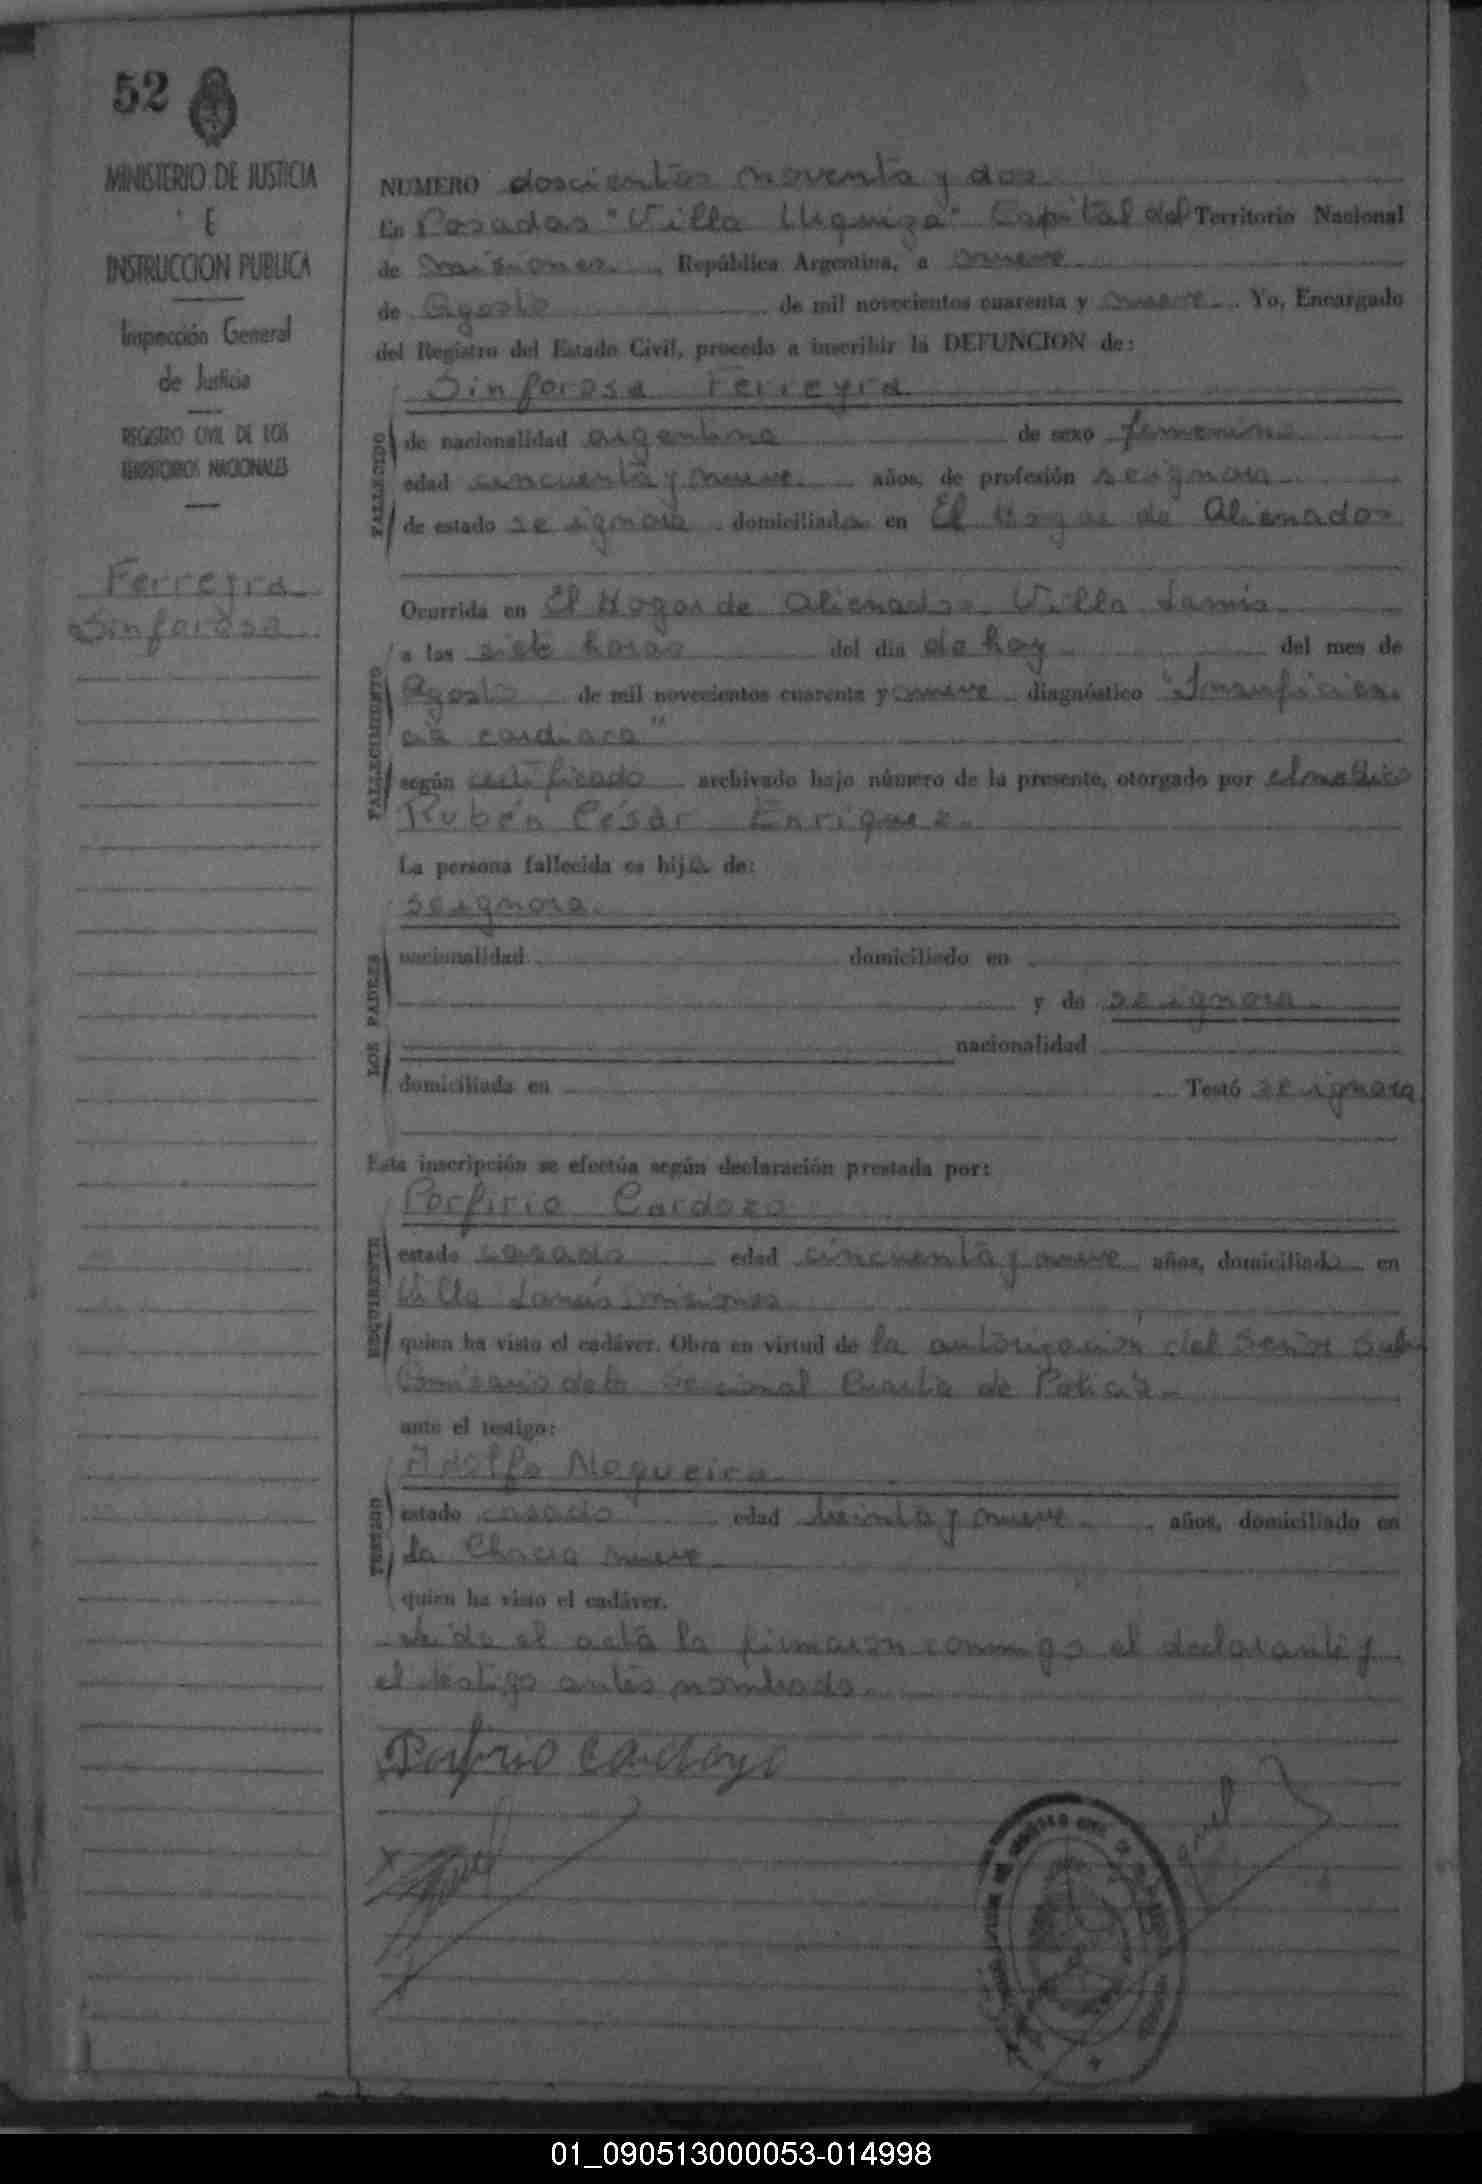 52
MINISTERIO DE JUSTICIA
E
INSTRUCCION PUBLICA
Inspección General
de Justicia
REGISTRO CIVIL DE LOS
TERRITORIOS NACIONALES
Ferreyra
Sinforosa
NUMERO doscientos noventa y dos
En Posadas "Villa Urquiza" Capital del Territorio Nacional
de Misiones República Argentina, a nueve
de Agosto de mil novecientos cuarenta y nueve. Yo, Encargado
del Registro del Estado Civil, procedo a inscribir la DEFUNCION de:
Sinforosa Ferreyra
FALLECIDO
de nacionalidad argentina de sexo femenino
edad cincuenta y nueve años, de profesión se ignora
de estado se ignora domiciliada en El Hogar de Alienados
Ocurrida en El Hogar de Alienados Villa Lanús
FALLECIMIENTO
a las siete horas del día de hoy del mes de
Agosto de mil novecientos cuarenta y nueve diagnóstico "Insuficien
cia cardiaca"
según certificado archivado bajo número de la presente, otorgado por el médico
Rubén César Enriquez
La persona fallecida es hija de:
se ignora
LOS PADRES
nacionalidad domiciliado en
y de se ignora
nacionalidad
domiciliada en Testó se ignora
Esta inscripción se efectúa según declaración prestada por:
Porfirio Cardozo
REQUIRENTE
estado casado edad cincuenta y nueve años, domiciliado en
Villa Lanús Misiones
quien ha visto el cadáver. Obra en virtud de la autorización del Señor Sub
Comisario de la Seccional Cuarta de Policía
ante el testigo:
Adolfo Nogueira
TESTIGO
estado casado edad treinta y nueve años, domiciliado en
La Chacra nueve
quien ha visto el cadáver.
Leída el acta la firmaron conmigo el declarante y
el testigo antes nombrado
Porfirio Cardozo
01_090513000053-014998